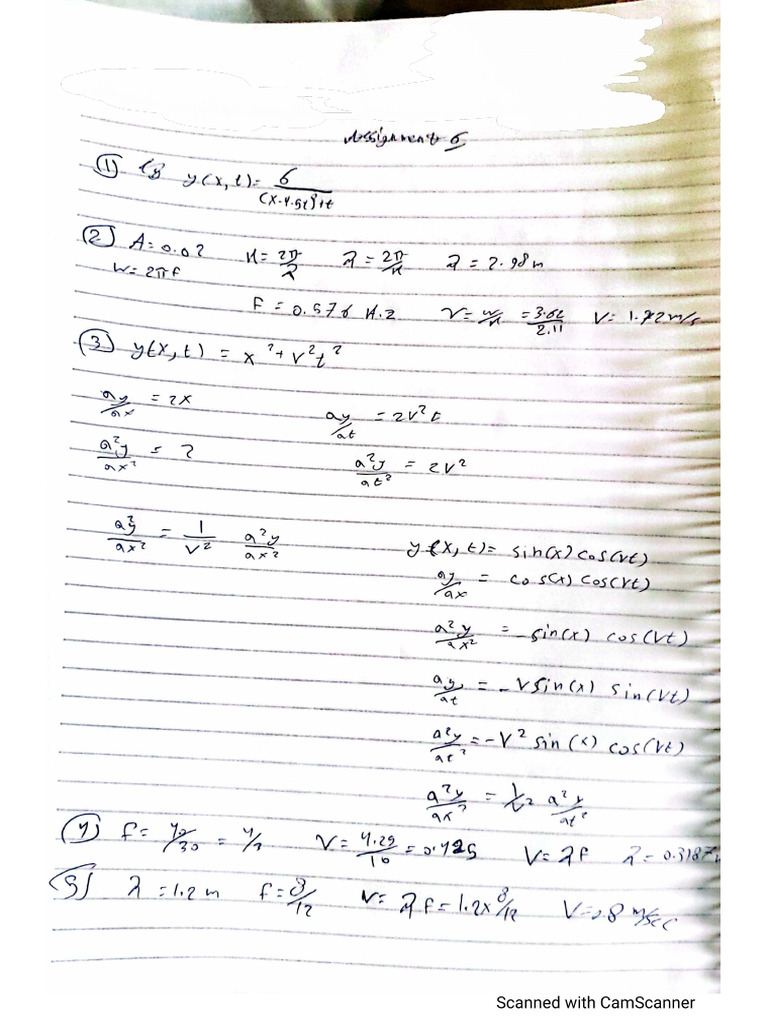 Assignment 6
(1) y(x,t) = 6 / (x-4.5t)²+t
(2) A = 0.02 K = 2π/λ λ = 2π/K λ = 2.98m
W = 2πf
F = 0.576 Hz V = w/K = 3.62/2.11 V = 1.72 m/s
(3) y(x,t) = x² + v²t²
∂y/∂x = 2x ∂y/∂t = 2v²t
∂²y/∂x² = 2 ∂²y/∂t² = 2v²
∂²y/∂x² = 1/v² ∂²y/∂x²
y(x,t) = sin(x) cos(vt)
∂y/∂x = cos(x) cos(vt)
∂²y/∂x² = -sin(x) cos(vt)
∂y/∂t = -v sin(x) sin(vt)
∂²y/∂t² = -v² sin(x) cos(vt)
∂²y/∂x² = 1/v² ∂²y/∂t²
f = 40/30 = 4/3 V = 4.25/10 = 0.425 V = λf λ = 0.3187
λ = 1.2 m f = 8/12 V = λf = 1.2 x 8/12 V = 0.8 m/sec
Scanned with CamScanner